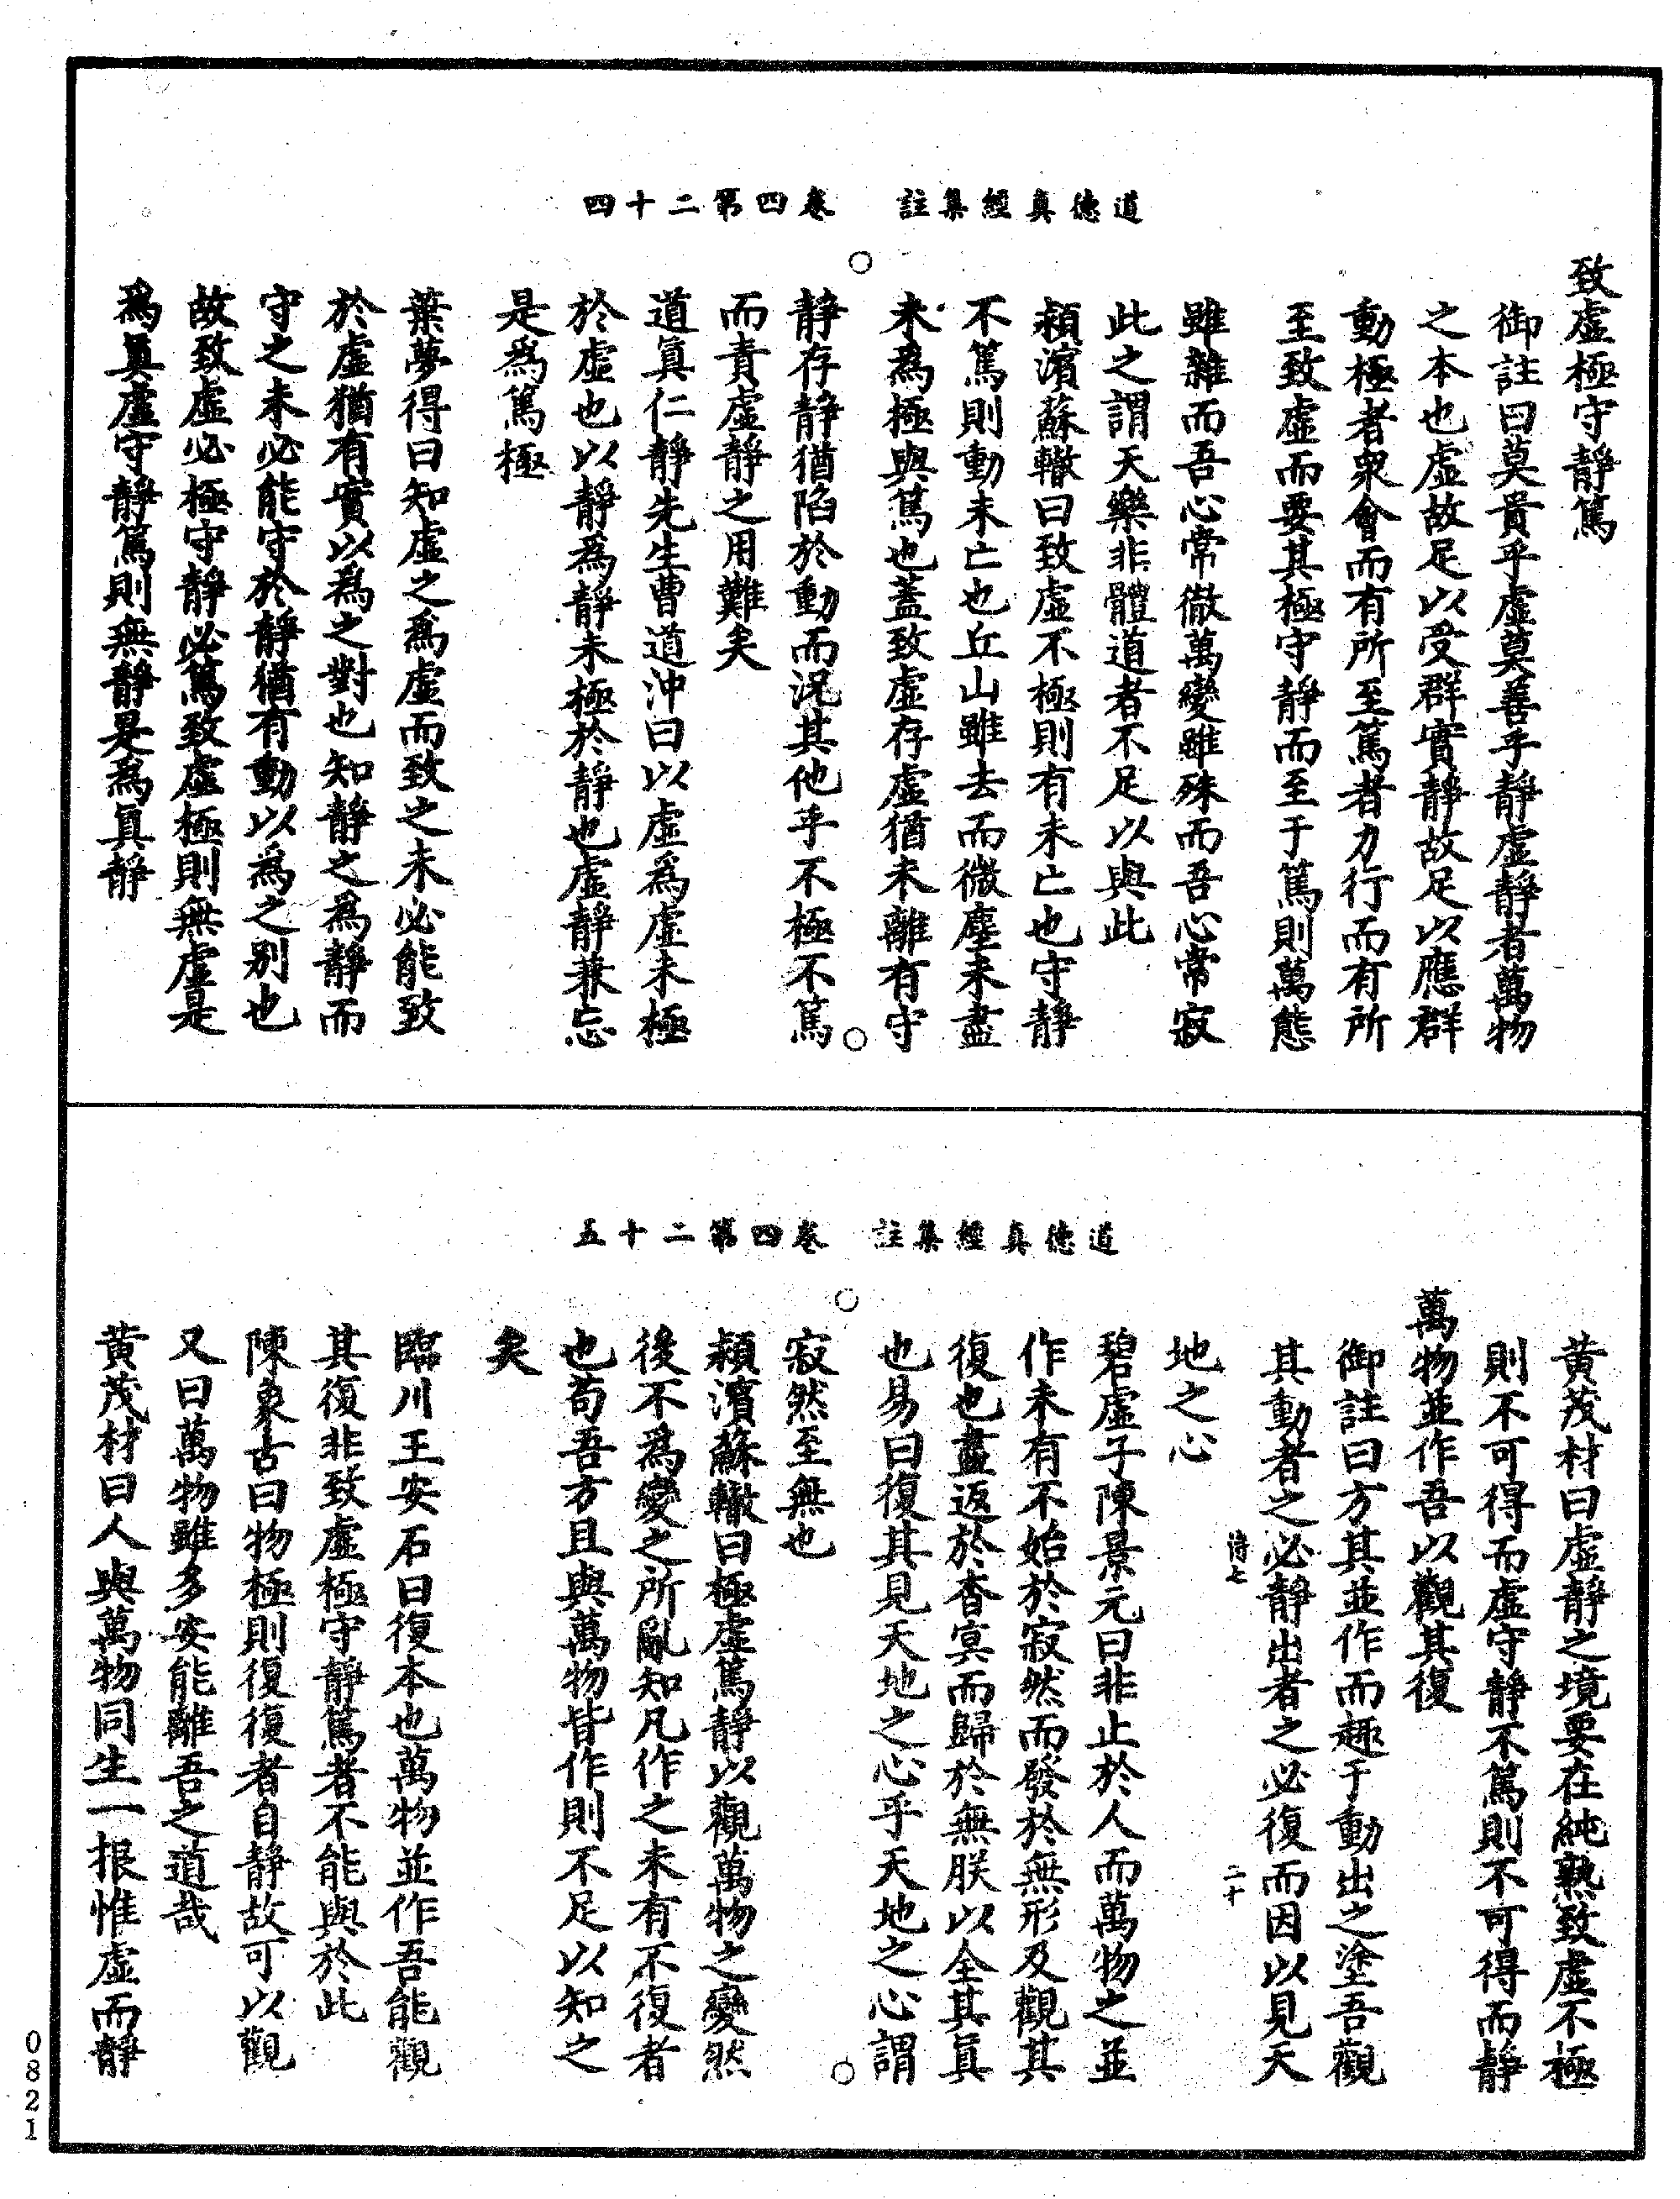 道德真經集註 卷四第二十四
致虛極守靜篤
御註曰莫貴乎虛莫善乎靜虛靜者萬物
之本也虛故足以受群實靜故足以應群
動極者衆會而有所至篤者力行而有所
至致虛而要其極守靜而至于篤則萬態
雖雜而吾心常徹萬變雖殊而吾心常寂
此之謂天樂非體道者不足以與此
潁濱蘇轍曰致虛不極則有未亡也守靜
不篤則動未亡也丘山雖去而微塵未盡
未爲極與篤也蓋致虛存虛猶未離有守
靜存靜猶陷於動而況其他乎不極不篤
而責虛靜之用難矣
道真仁靜先生曹道沖曰以虛爲虛未極
於虛也以靜爲靜未極於靜也虛靜兼忘
是爲篤極
葉夢得曰知虛之爲虛而致之未必能致
於虛猶有實以爲之對也知靜之爲靜而
守之未必能守於靜猶有動以爲之别也
故致虛必極守靜必篤致虛極則無虛是
爲真虛守靜篤則無靜是爲真靜
道德真經集註 卷四第二十五
黄茂材曰虛靜之境要在純熟致虛不極
則不可得而虛守靜不篤則不可得而靜
萬物並作吾以觀其復
御註曰方其並作而趣于動出之塗吾觀
其動者之必靜出者之必復而因以見天
地之心
碧虛子陳景元曰非止於人而萬物之並
作未有不始於寂然而發於無形及觀其
復也盡返於杳冥而歸於無朕以全其真
也易曰復其見天地之心乎天地之心謂
寂然至無也
潁濱蘇轍曰極虛篤靜以觀萬物之變然
後不爲變之所亂知凡作之未有不復者
也苟吾方且與萬物皆作則不足以知之
矣
臨川王安石曰復本也萬物並作吾能觀
其復非致虛極守靜篤者不能與於此
陳象古曰物極則復復者自靜故可以觀
又曰萬物雖多安能離吾之道哉
黄茂材曰人與萬物同生一根惟虛而靜
二十
0821